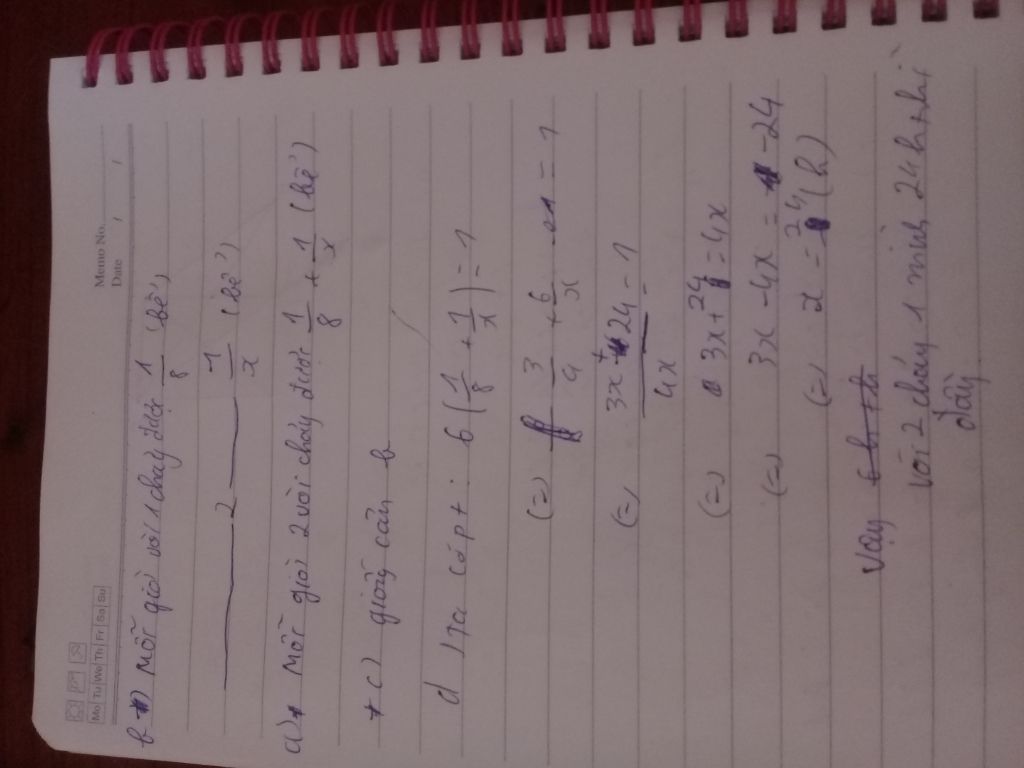 Memo No.
Date / /
Mo Tu We Th Fr Sa Su
b) Mỗi giờ vòi 1 chảy được 1/8 (bể)
2 1/x (bể)
a) Mỗi giờ 2 vòi chảy được 1/8 + 1/x (bể)
* c) giống câu b
d) Ta có pt: 6(1/8 + 1/x) = 1
(=) 3/4 + 6/x = 1
(=) 3x + 24 / 4x = 1
(=) 3x + 24 = 4x
(=) 3x - 4x = -24
(=) x = 24 (h)
Vậy
vòi 2 chảy 1 mình 24h thì
đầy